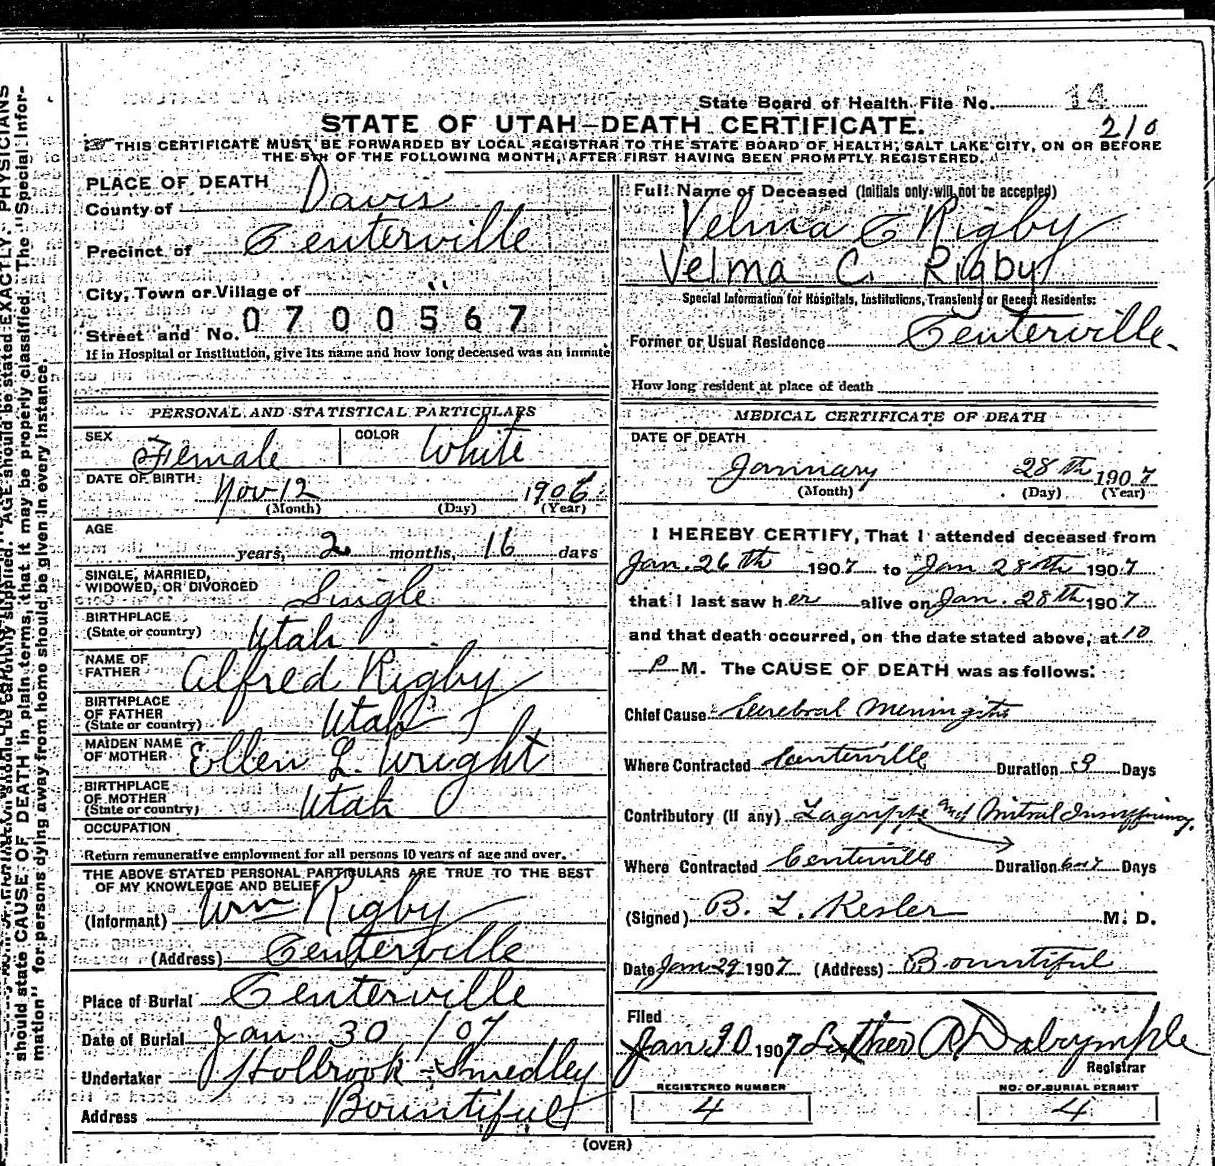 State Board of Health File No. 14
STATE OF UTAH—DEATH CERTIFICATE.
210
THIS CERTIFICATE MUST BE FORWARDED BY LOCAL REGISTRAR TO THE STATE BOARD OF HEALTH, SALT LAKE CITY, ON OR BEFORE
THE 5TH OF THE FOLLOWING MONTH, AFTER FIRST HAVING BEEN PROMPTLY REGISTERED.
PLACE OF DEATH
County of Davis
Precinct of Centerville
City, Town or Village of "
Street and No. 0700567
If in Hospital or Institution, give its name and how long deceased was an inmate
PERSONAL AND STATISTICAL PARTICULARS
SEX Female COLOR White
DATE OF BIRTH Nov 12 1906
(Month) (Day) (Year)
AGE years, 2 months, 16 days
SINGLE, MARRIED,
WIDOWED, OR DIVORCED Single
BIRTHPLACE
(State or country) Utah
NAME OF
FATHER Alfred Rigby
BIRTHPLACE
OF FATHER
(State or country) Utah
MAIDEN NAME
OF MOTHER Ellen L. Wright
BIRTHPLACE
OF MOTHER
(State or country) Utah
OCCUPATION
Return remunerative employment for all persons 10 years of age and over.
THE ABOVE STATED PERSONAL PARTICULARS ARE TRUE TO THE BEST
OF MY KNOWLEDGE AND BELIEF
(Informant) Wm Rigby
(Address) Centerville
Place of Burial Centerville
Date of Burial Jan 30 /07
Undertaker Holbrook - Smedley
Address Bountiful
Full Name of Deceased (Initials only will not be accepted)
Velma C Rigby
Velma C. Rigby
Special Information for Hospitals, Institutions, Transients or Recent Residents:
Former or Usual Residence Centerville.
How long resident at place of death
MEDICAL CERTIFICATE OF DEATH
DATE OF DEATH
January 28th 1907
(Month) (Day) (Year)
I HEREBY CERTIFY, That I attended deceased from
Jan. 26th 1907 to Jan 28th 1907
that I last saw her alive on Jan. 28th 1907
and that death occurred, on the date stated above, at 10
P M. The CAUSE OF DEATH was as follows:
Chief Cause Cerebral Meningitis
Where Contracted Centerville Duration 3 Days
Contributory (if any) Lagrippe and Mitral Insufficiency.
Where Contracted Centerville Duration 6 or 7 Days
(Signed) B. L. Kesler M. D.
Date Jan 29 1907 (Address) Bountiful
Filed
Jan 30 1907 Luther R Dalrymple
Registrar
REGISTERED NUMBER NO. OF BURIAL PERMIT
4 4
(OVER)
should state CAUSE OF DEATH in plain terms, that it may be properly classified. The "Special Infor-
mation" for persons dying away from home should be given in every instance.